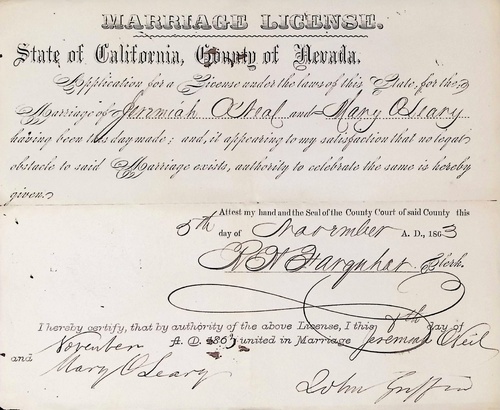 MARRIAGE LICENSE.
State of California, County of Nevada.
Application for a License under the laws of this State, for the
Marriage of Jeremiah O'Neal and Mary O'Leary
having been this day made; and, it appearing to my satisfaction that no legal
obstacle to said Marriage exists, authority to celebrate the same is hereby
given.
Attest my hand and the Seal of the County Court of said County this
5th day of November A. D., 1863
R H Farquhar Clerk.
I hereby certify, that by authority of the above License, I this 8th day of
November A. D. 1863 united in Marriage Jeremiah O'Neil
and Mary O'Leary
John Griffin